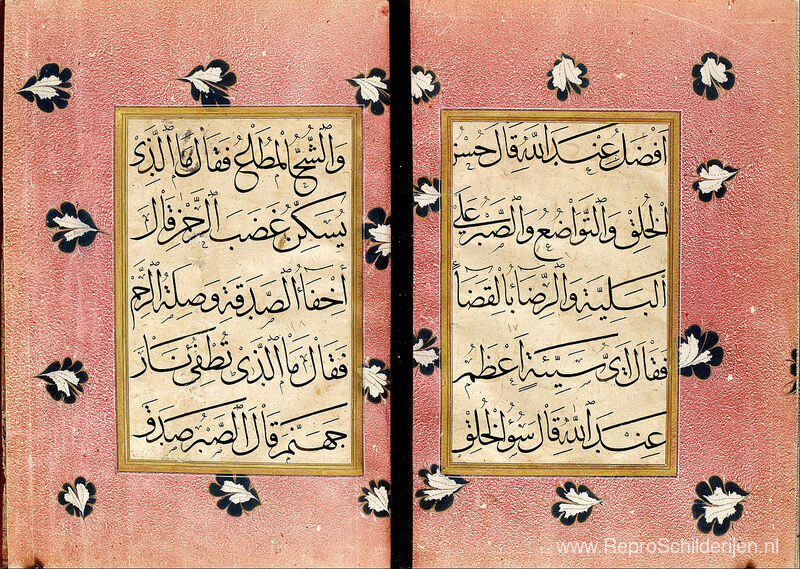 افضل عند الله قال حسن
الخلق والتواضع والصبر على
البلية والرضا بالقضا
فقال اى سيئة اعظم
عند الله قال سوء الخلق
والشح المطاع فقال ما الذى
يسكن غضب الرحمن قال
أخفا الصدقة وصلة الرحم
فقال ما الذى تطفئ نار
جهنم قال الصبر صدق
www.ReproSchilderijen.nl